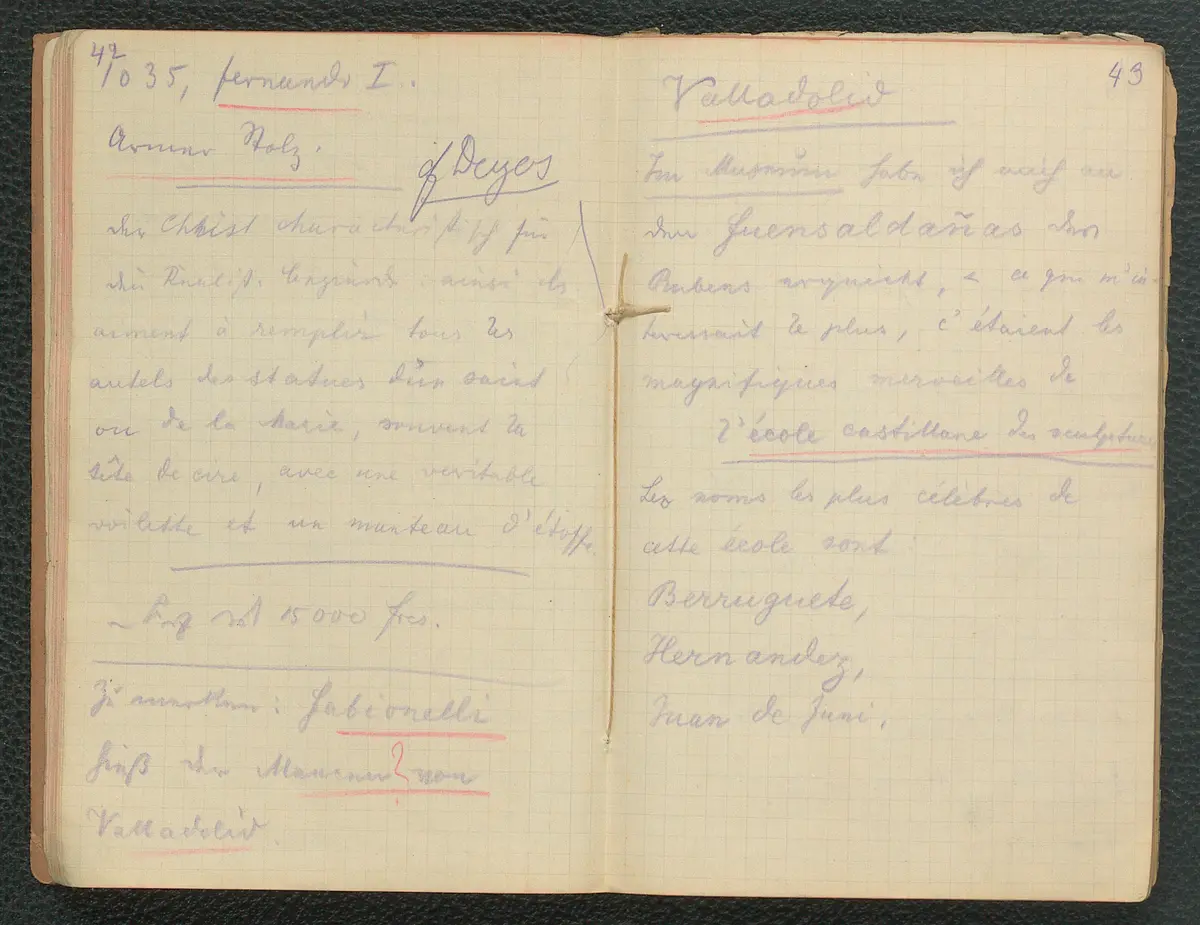 42
1035, fernando I.
Armer Stolz.
cf Deyos
der Christ charakteristisch für
die Realist. ainsi ils
aiment à remplir tous les
autels des statues d'un saint
ou de la Marie, souvent la
tête de cire, avec une veritable
voilette et un manteau d'étoffe.
15000 frcs.
Zu merken: Fabionelli
hieß der von
Valladolid
43
Valladolid
Im Museum habe ich mich an
den Fuensaldañas des
Rubens ergnickt, ce qui m'in-
teressait le plus, c'étaient les
magnifiques merveilles de
l'école castillane des sculpteurs
Les noms les plus célèbres de
cette école sont
Berruguete,
Hernandez,
Juan de Juni.